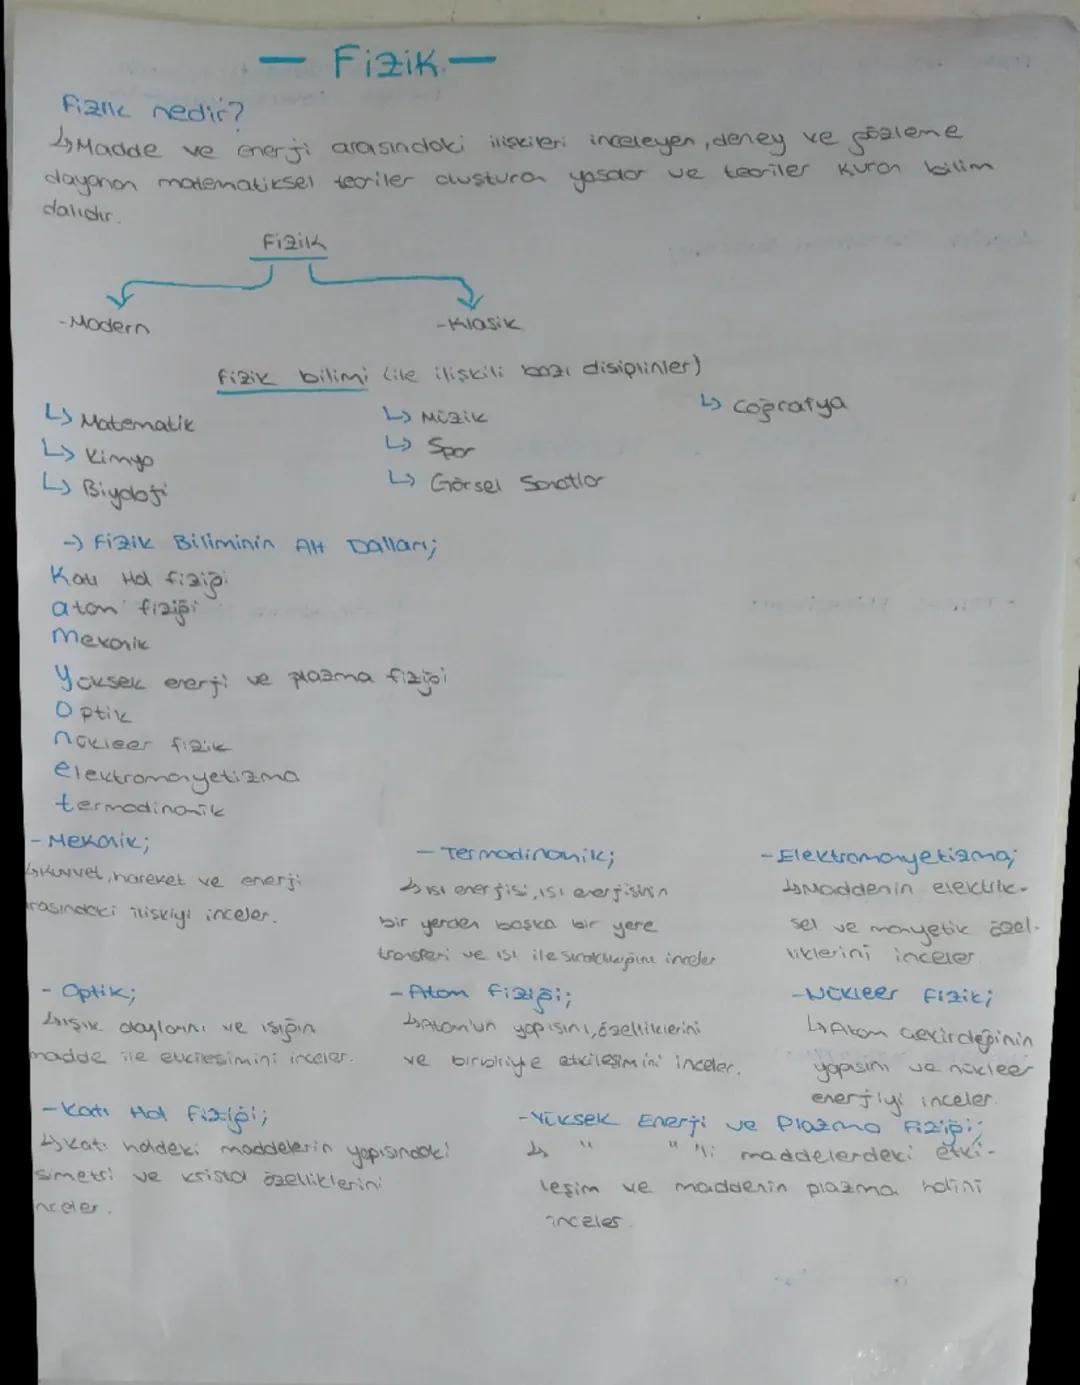 — Fizik —
Fizik nedir?
↳ Madde ve enerji arasındaki ilişkileri inceleyen, deney ve gözleme
dayanan matematiksel teoriler oluşturan yasalar ve teoriler kuran bilim
dalıdır.
Fizik
-Modern
-Klasik
Fizik bilimi (ile ilişkili bazı disiplinler)
↳ Matematik
↳ Kimya
↳ Biyoloji
↳ Müzik
↳ Spor
↳ Görsel Sanatlar
↳ Coğrafya
-) Fizik Biliminin Alt Dalları;
Katı Hal fiziği
atom fiziği
Mekanik
Yüksek enerji ve plazma fiziği
Optik
nükleer fizik
elektromanyetizma
termodinamik
- Mekanik;
↳ Kuvvet, hareket ve enerji
arasındaki ilişkiyi inceler.
- Termodinamik;
↳ ısı enerjisi, ısı enerjisinin
bir yerden başka bir yere
transferi ve ısı ile sıcaklığını inceler
- Elektromanyetizma;
↳ Maddenin elektrik-
sel ve manyetik özel-
liklerini inceler
- Optik;
↳ Işık olaylarını ve ışığın
madde ile etkileşimini inceler.
- Atom Fiziği;
↳ Atom'un yapısını, özelliklerini
ve birbiriyle etkileşimini inceler.
- Nükleer Fizik;
↳ Atom çekirdeğinin
yapısını ve nükleer
enerjiyi inceler.
- Katı Hal Fiziği;
↳ Katı haldeki maddelerin yapısındaki
simetri ve kristal özelliklerini
inceler.
- Yüksek Enerji ve Plazma Fiziği;
↳ " " 'li maddelerdeki etki-
leşim ve maddenin plazma halini
inceler.